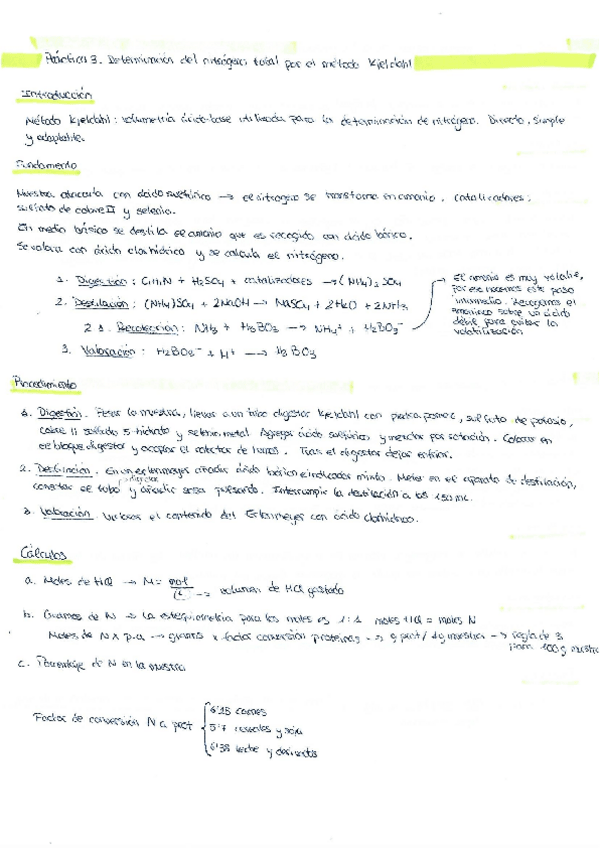 Práctica 3. Determinación del nitrógeno total por el método Kjeldahl
Introducción
Método Kjeldahl: volumetría ácido-base utilizada para la determinación de nitrógeno. Directo, simple
y adaptable.
Fundamento
Muestra atacada con ácido sulfúrico → el nitrógeno se transforma en amonio, catalizadores:
sulfato de cobre II y selenio.
En medio básico se destila el amonio que es recogido con ácido bórico.
Se valora con ácido clorhídrico y se calcula el nitrógeno.
1. Digestión: CnHnN + H2SO4 + catalizadores → (NH4)2 SO4
2. Destilación: (NH4)SO4 + 2NaOH → NaSO4 + 2H2O + 2NH3
2.1. Recolección: NH3 + H3BO3 → NH4+ + H2BO3-
El amonio es muy volátil,
por eso hacemos este paso
intermedio. Recogemos el
amoníaco sobre un ácido
débil para evitar la
volatilización
3. Valoración: H2BO3- + H+ → H3BO3
Procedimiento
1. Digestión. Pesar la muestra, llevar a un tubo digestor Kjeldahl con piedra pómez, sulfato de potasio,
cobre II sulfato 5-hidrato y selenio metal. Agregar ácido sulfúrico y mezclar por rotación. Colocar en
el bloque digestor y acoplar el colector de humos. Tras el digestor dejar enfriar.
2. Destilación. En un erlenmeyer añadir ácido bórico e indicador mixto. Meter en el aparato de destilación,
conectar el tubo digestor y añadir sosa pulsando. Interrumpir la destilación a los 150 mL.
3. Valoración. Valorar el contenido del Erlenmeyer con ácido clorhídrico.
Cálculos
a. Moles de HCl → M = mol / L → volumen de HCl gastado
b. Gramos de N → La estequiometría para los moles es 1:1 moles HCl = moles N
Moles de N x p.a → gramos x factor conversión proteínas → g prot / g muestra → regla de 3
para 100 g muestra
c. Porcentaje de N en la muestra
Factor de conversión N a prot
6'25 carnes
5'7 cereales y soja
6'38 leche y derivados